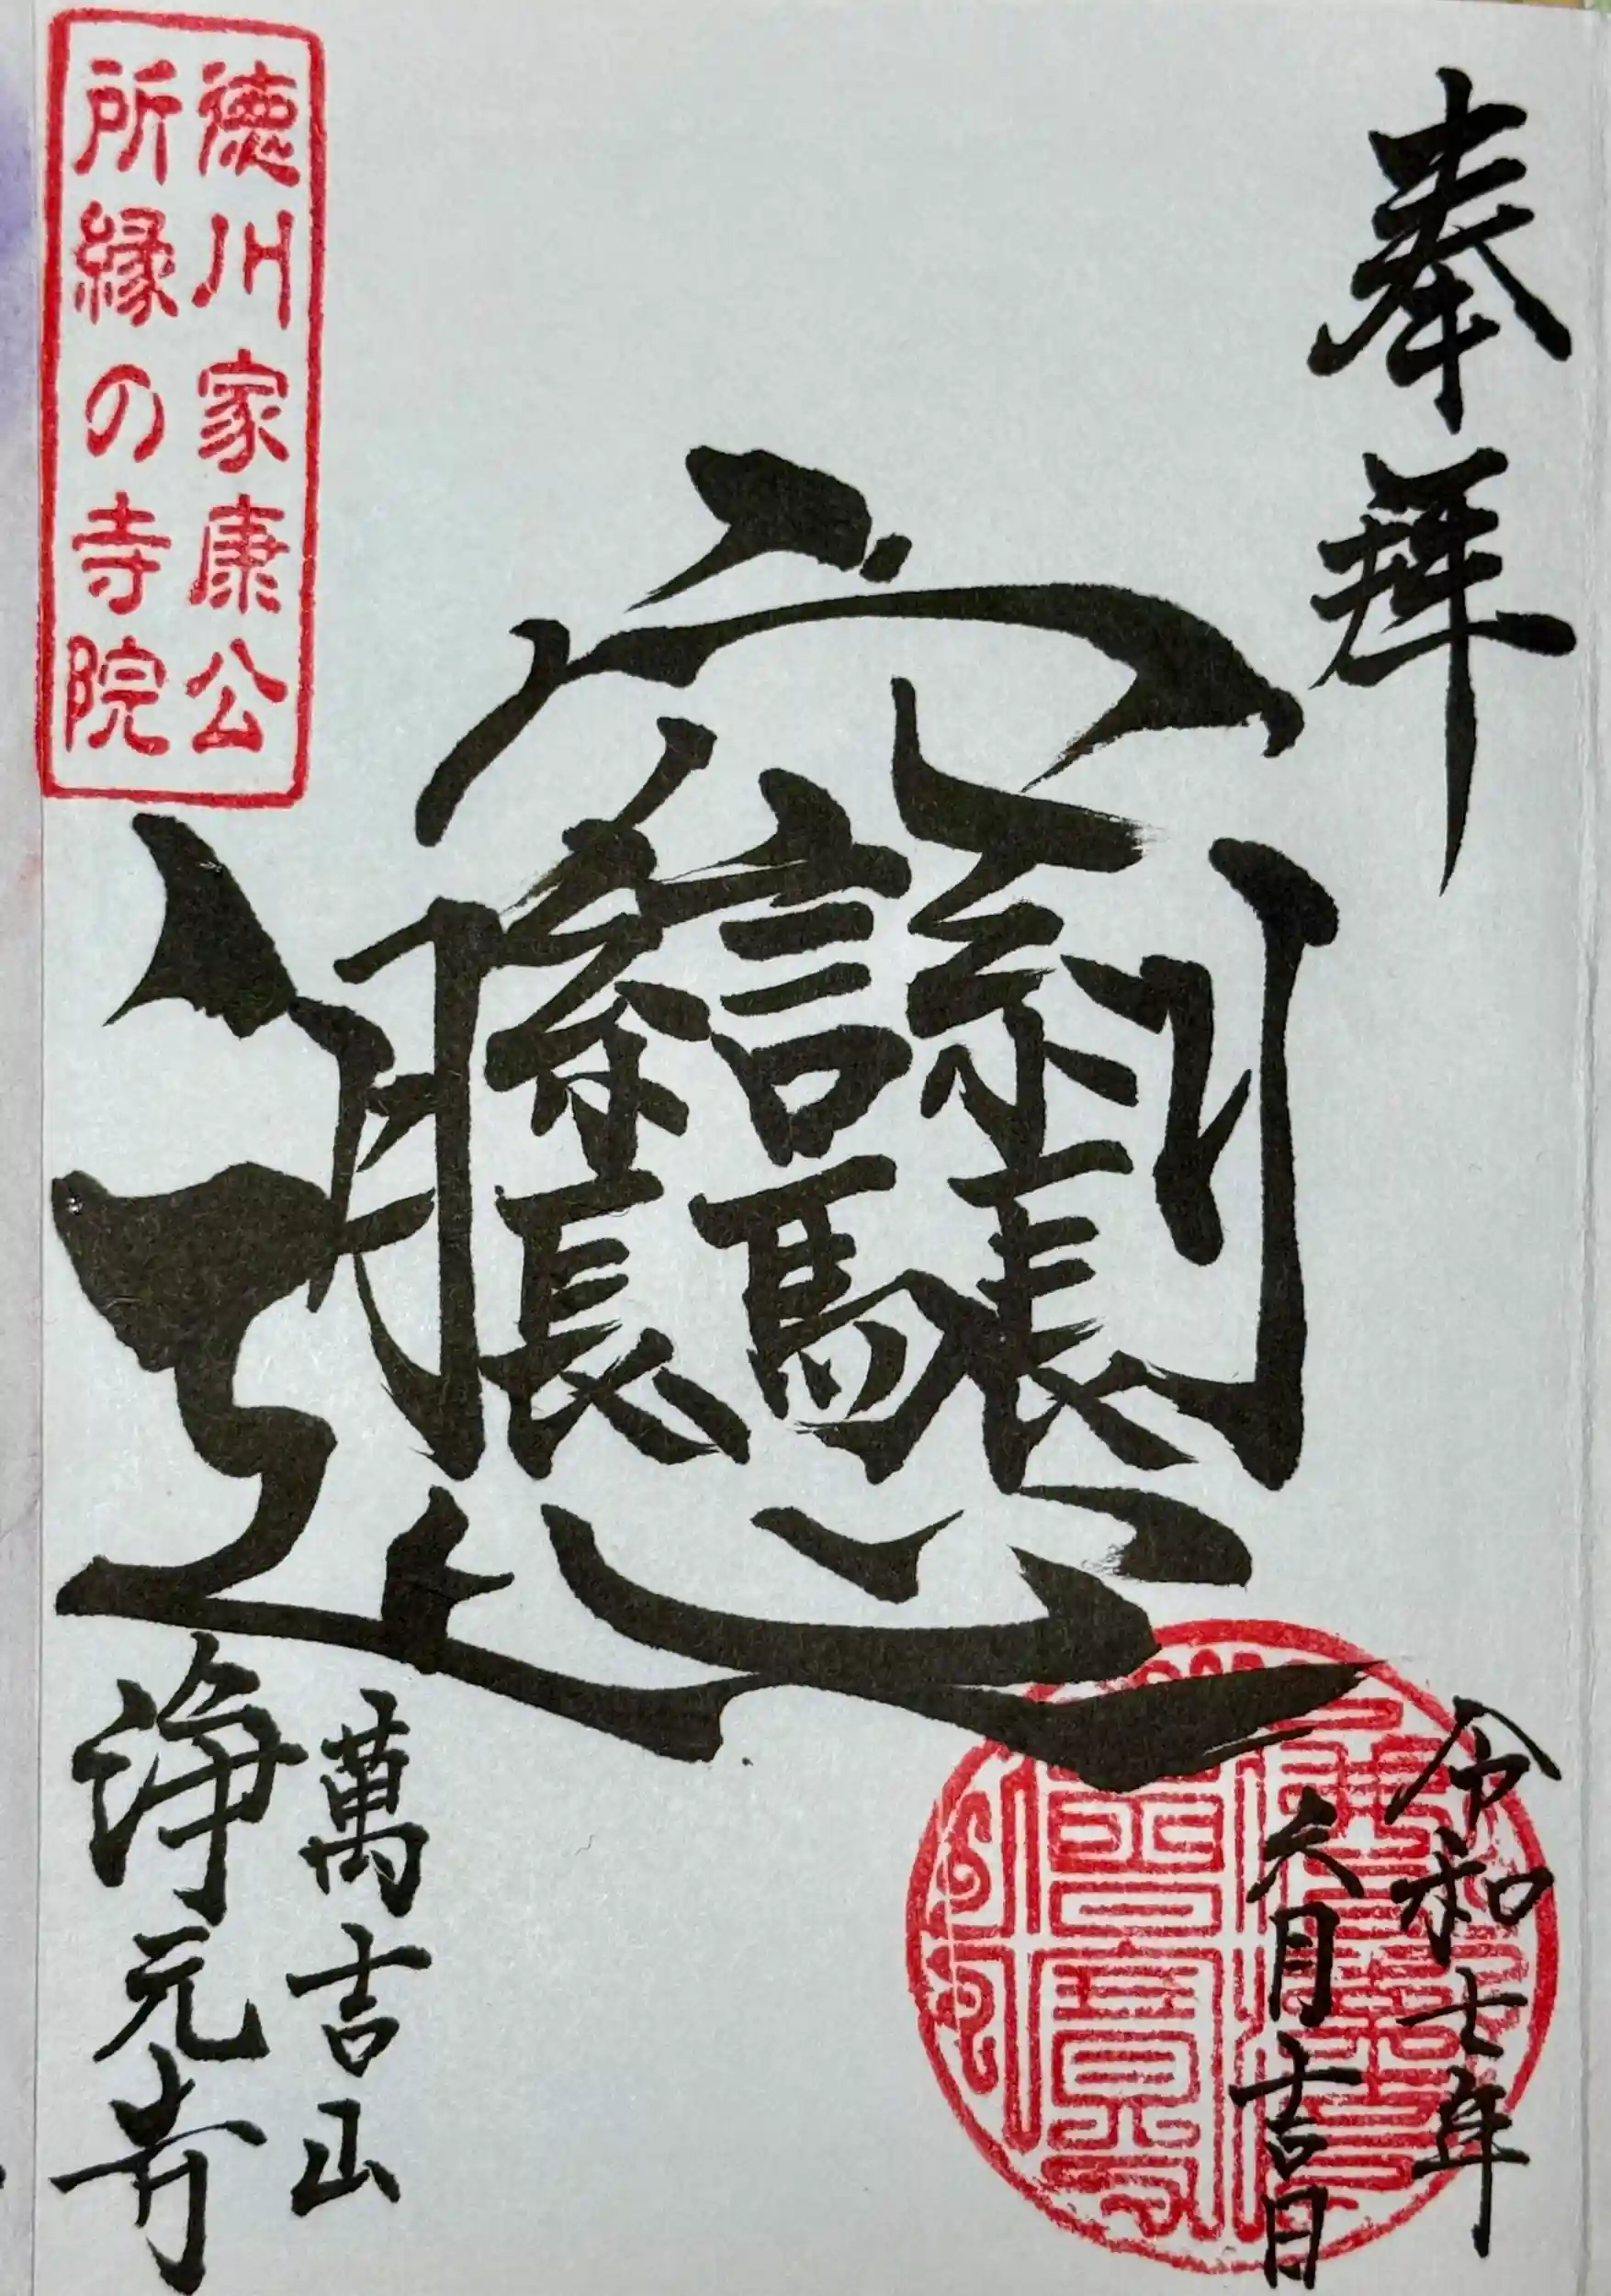 奉拝
令和七年
六月吉日
𰻞
徳川家康公
所縁の寺院
萬吉山
浄元寺